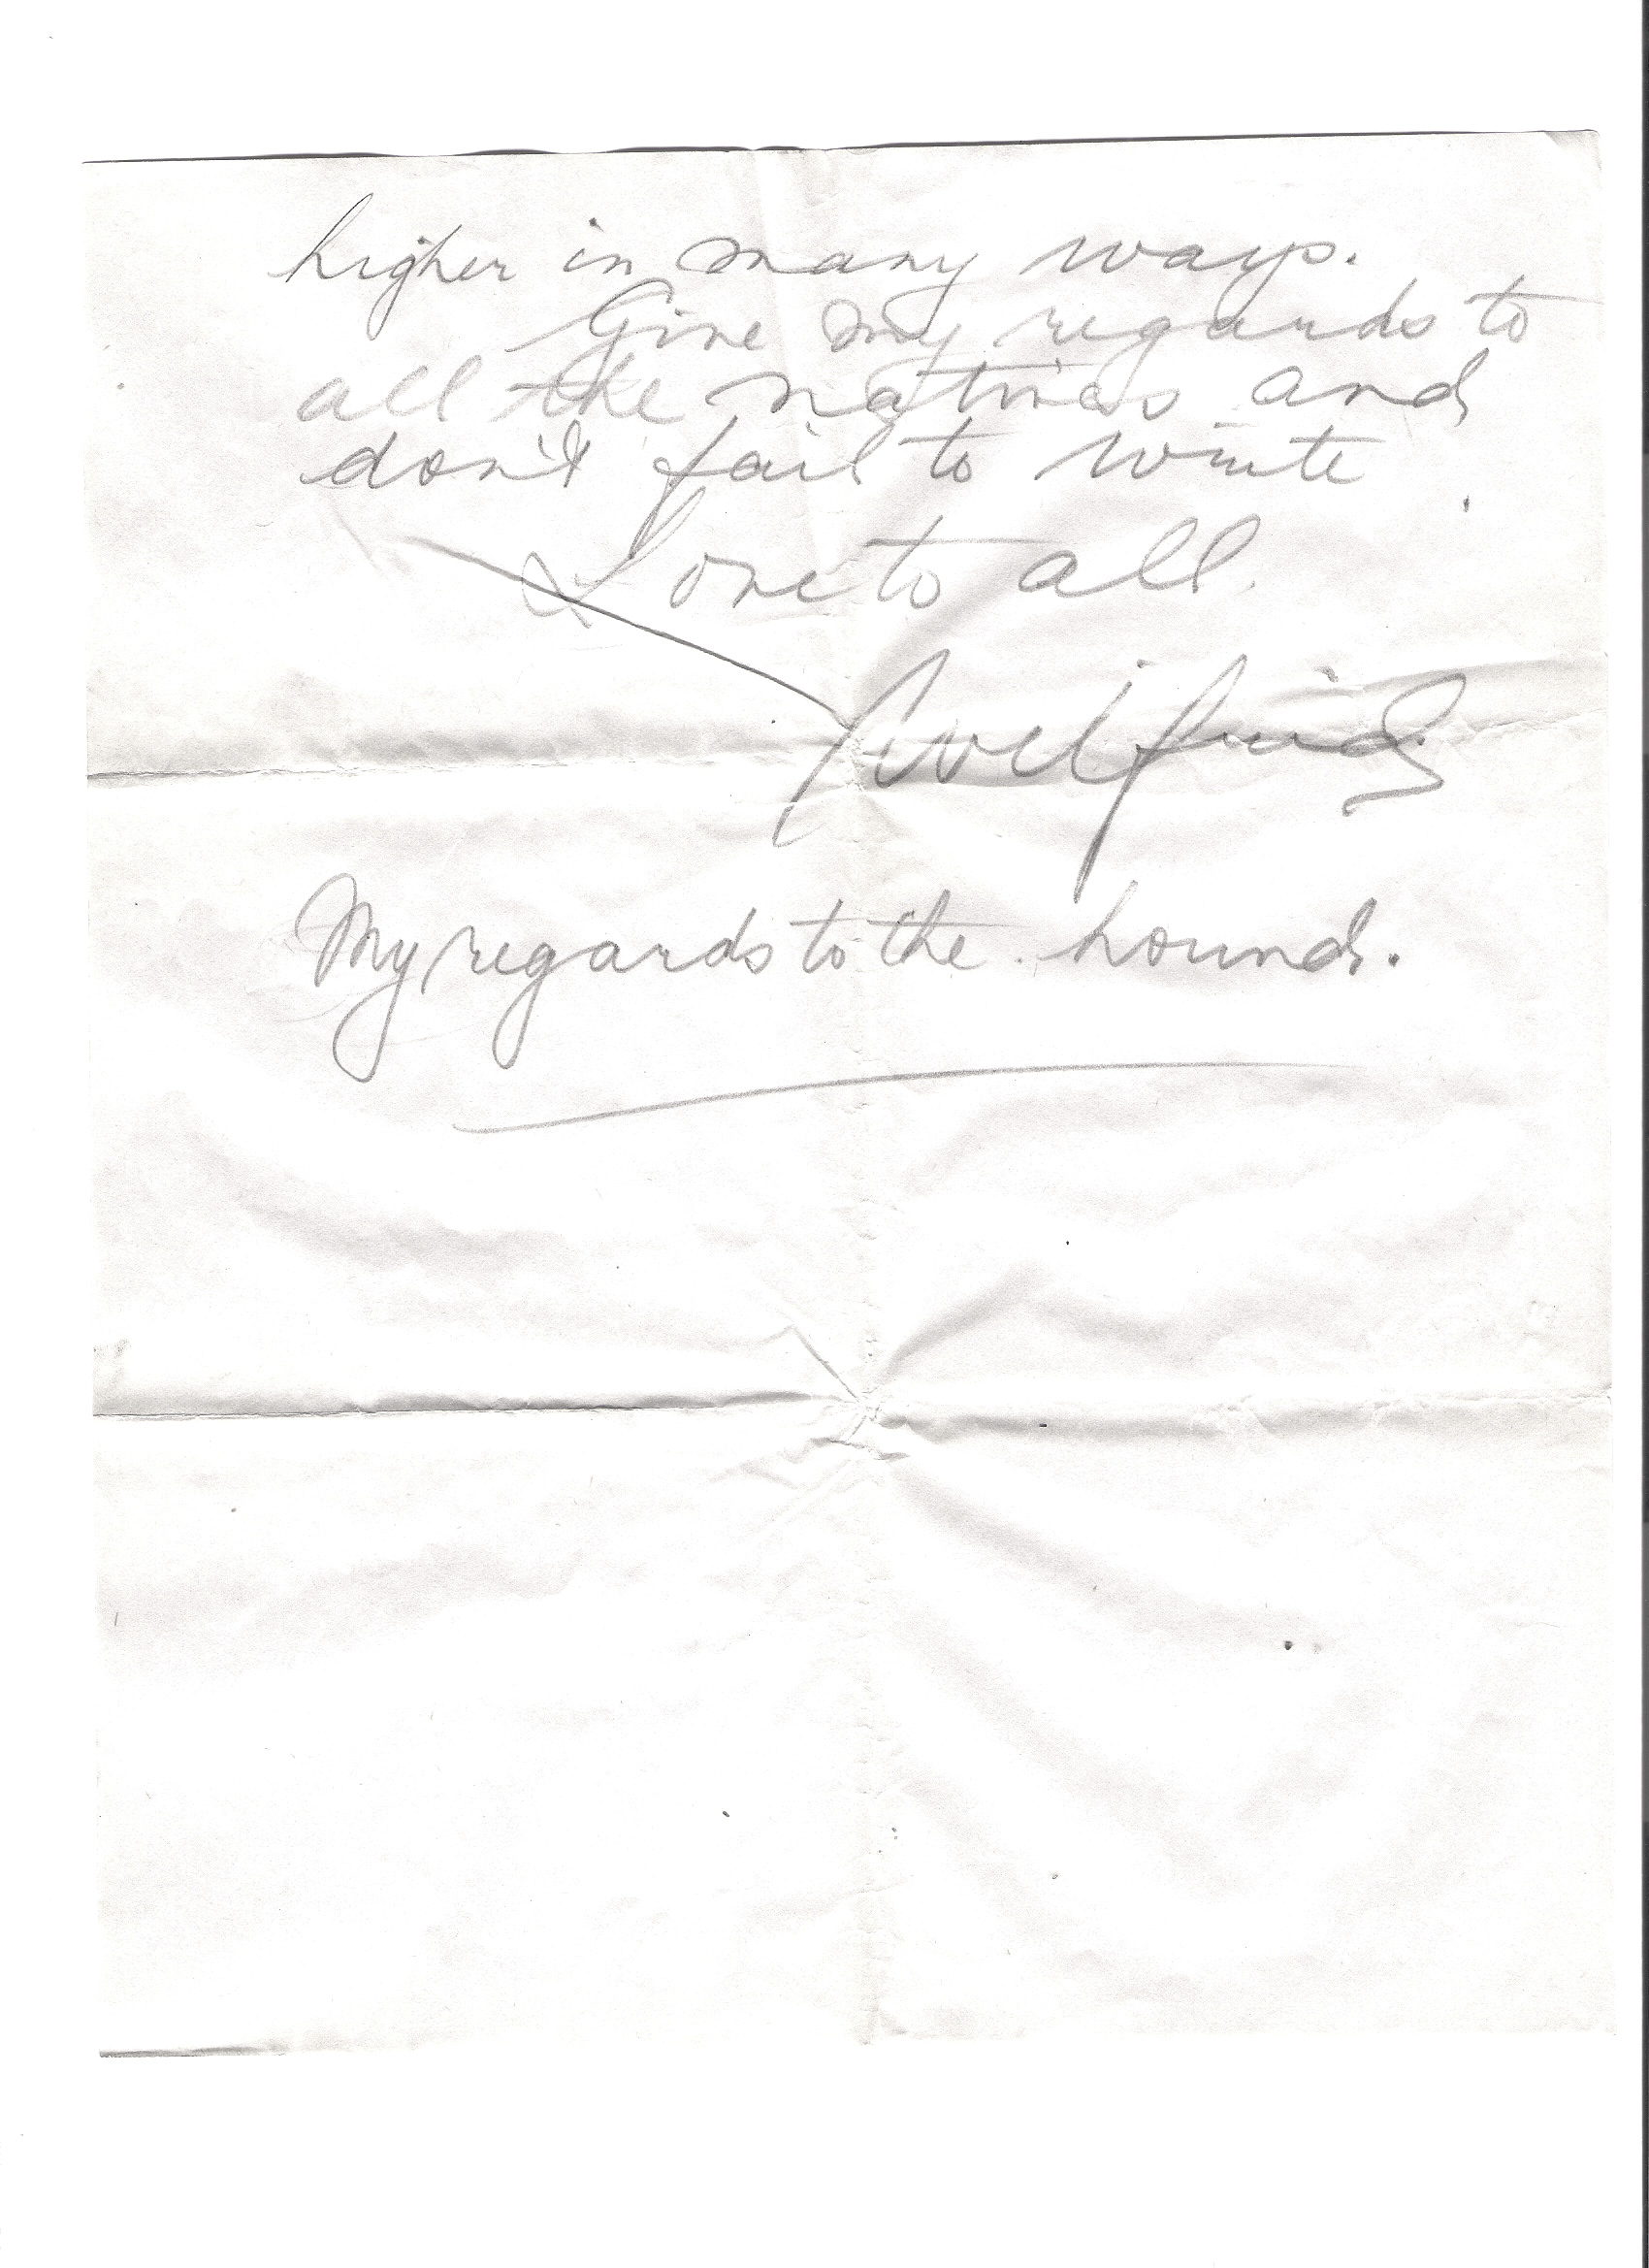 higher in many ways.
Give my regards to
all the natives and
don't fail to write
Love to all.
Wilfrid
My regards to the hounds.